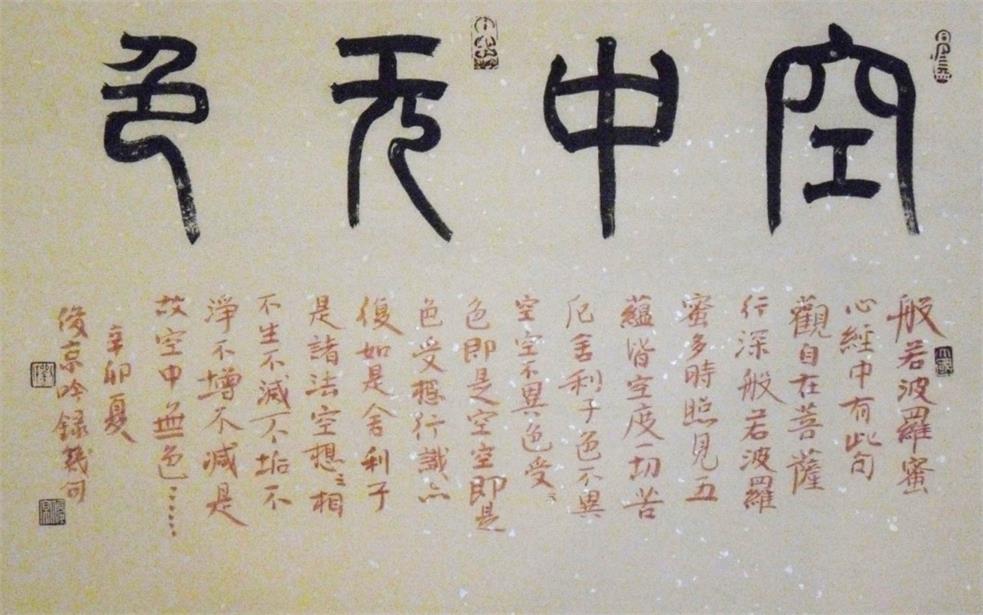 空中无色
般若波羅蜜
心經中有此句
觀自在菩薩
行深般若波羅
蜜多時照見五
蘊皆空度一切苦
厄舍利子色不異
空空不異色受〻
色即是空空即是
色受想行識亦
復如是舍利子
是諸法空想〻相
不生不滅不垢不
淨不增不減是
故空中無色……
辛卯夏
俊京吟錄幾句